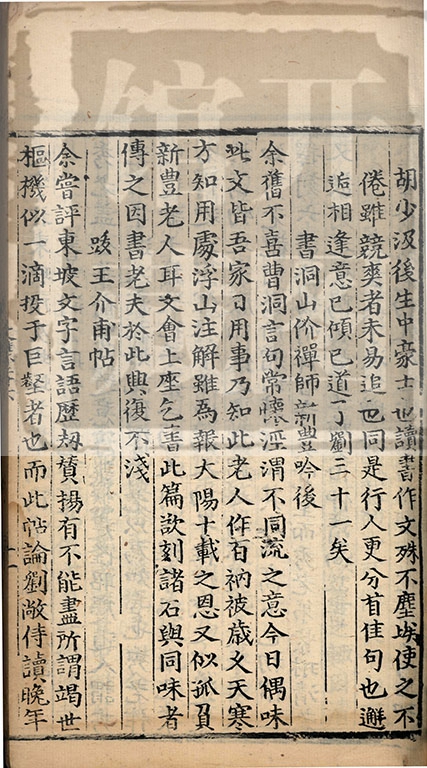 胡少汲後生中豪士也讀書作文殊不塵埃使之不
倦雖競爽者未易追也同是行人更分首佳句也邂
逅相逢意已傾已道了劉三十一矣
書洞山价禪師新豐吟後
余舊不喜曹洞言句常懷涇渭不同流之意今日偶味
此文皆吾家日用事乃知此老人作百衲被歲久天寒
方知用處浮山注解雖爲報大陽十載之恩又似孤負
新豐老人耳文會上座乞書此篇欲刻諸石與同味者
傳之因書老夫於此興復不淺
跋王介甫帖
余嘗評東坡文字言語歷劫贊揚有不能盡所謂竭世
樞機似一滴投于巨壑者也而此帖論劉敞侍讀晚年